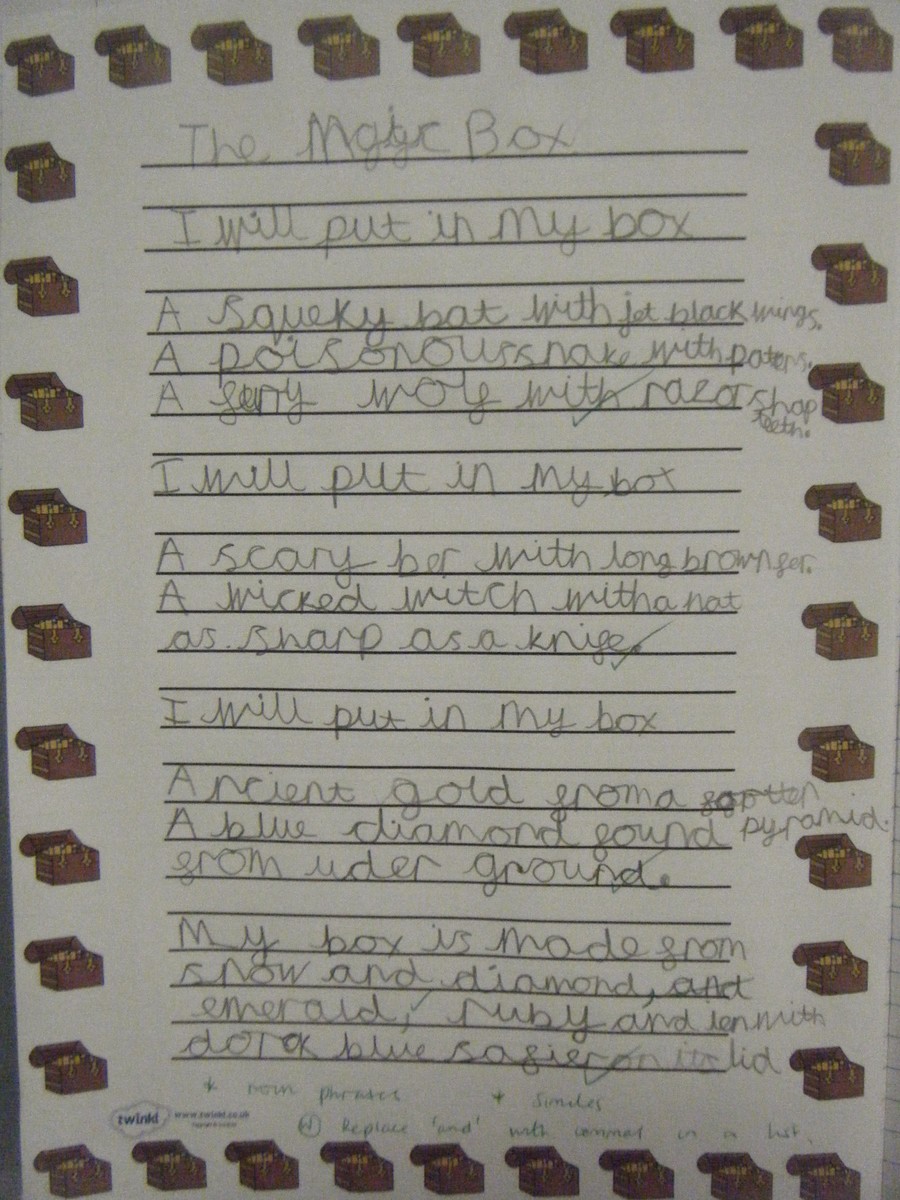 The Magic Box
I will put in my box
A squeky bat with jet black wings.
A poisonous snake with paterns.
A ferry wolf with razor shap
teeth.
I will put in my box
A scary ber with long brown fer.
A wicked witch with a hat
as sharp as a knife.
I will put in my box
Ancient gold from a
pyramid.
A blue diamond found
from uder ground.
My box is made from
snow and diamond, and
emerald, ruby and
dork blue safier on its lid
* noun phrases * Similes
twinkl www.twinkl.co.uk
W Replace 'and' with commas in a list.